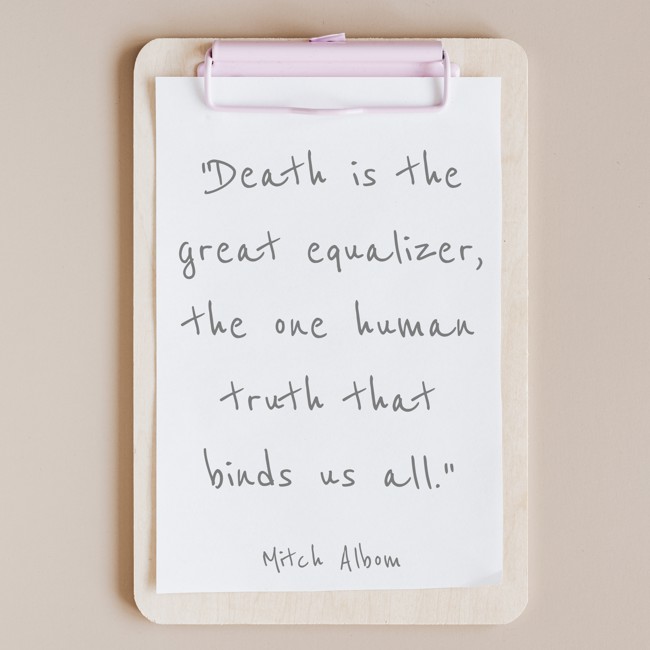 "Death is the
great equalizer,
the one human
truth that
binds us all."
Mitch Albom